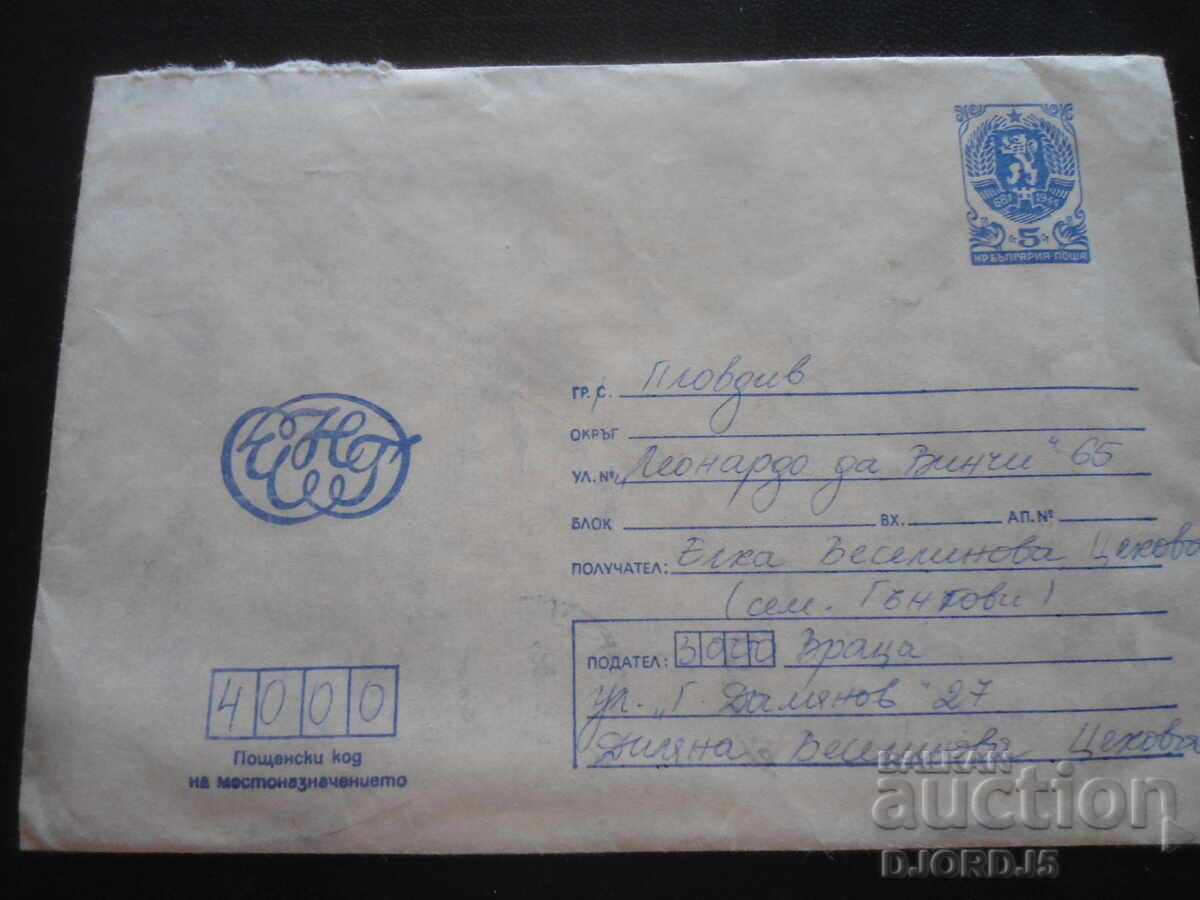 681 1944
5
НР БЪЛГАРИЯ·ПОЩА
ГР. С. Пловдив
ОКРЪГ
УЛ. № „Леонардо да Винчи“ 65
БЛОК ВХ. АП. №
ПОЛУЧАТЕЛ: Елка Веселинова Цекова
(сем. Гънгови)
ПОДАТЕЛ: 3000 Враца
ул. „Г. Дамянов“ 27
Диляна Веселинова Цекова
4000
Пощенски код
на местоназначението
BALKAN
auction
DJORDJ5